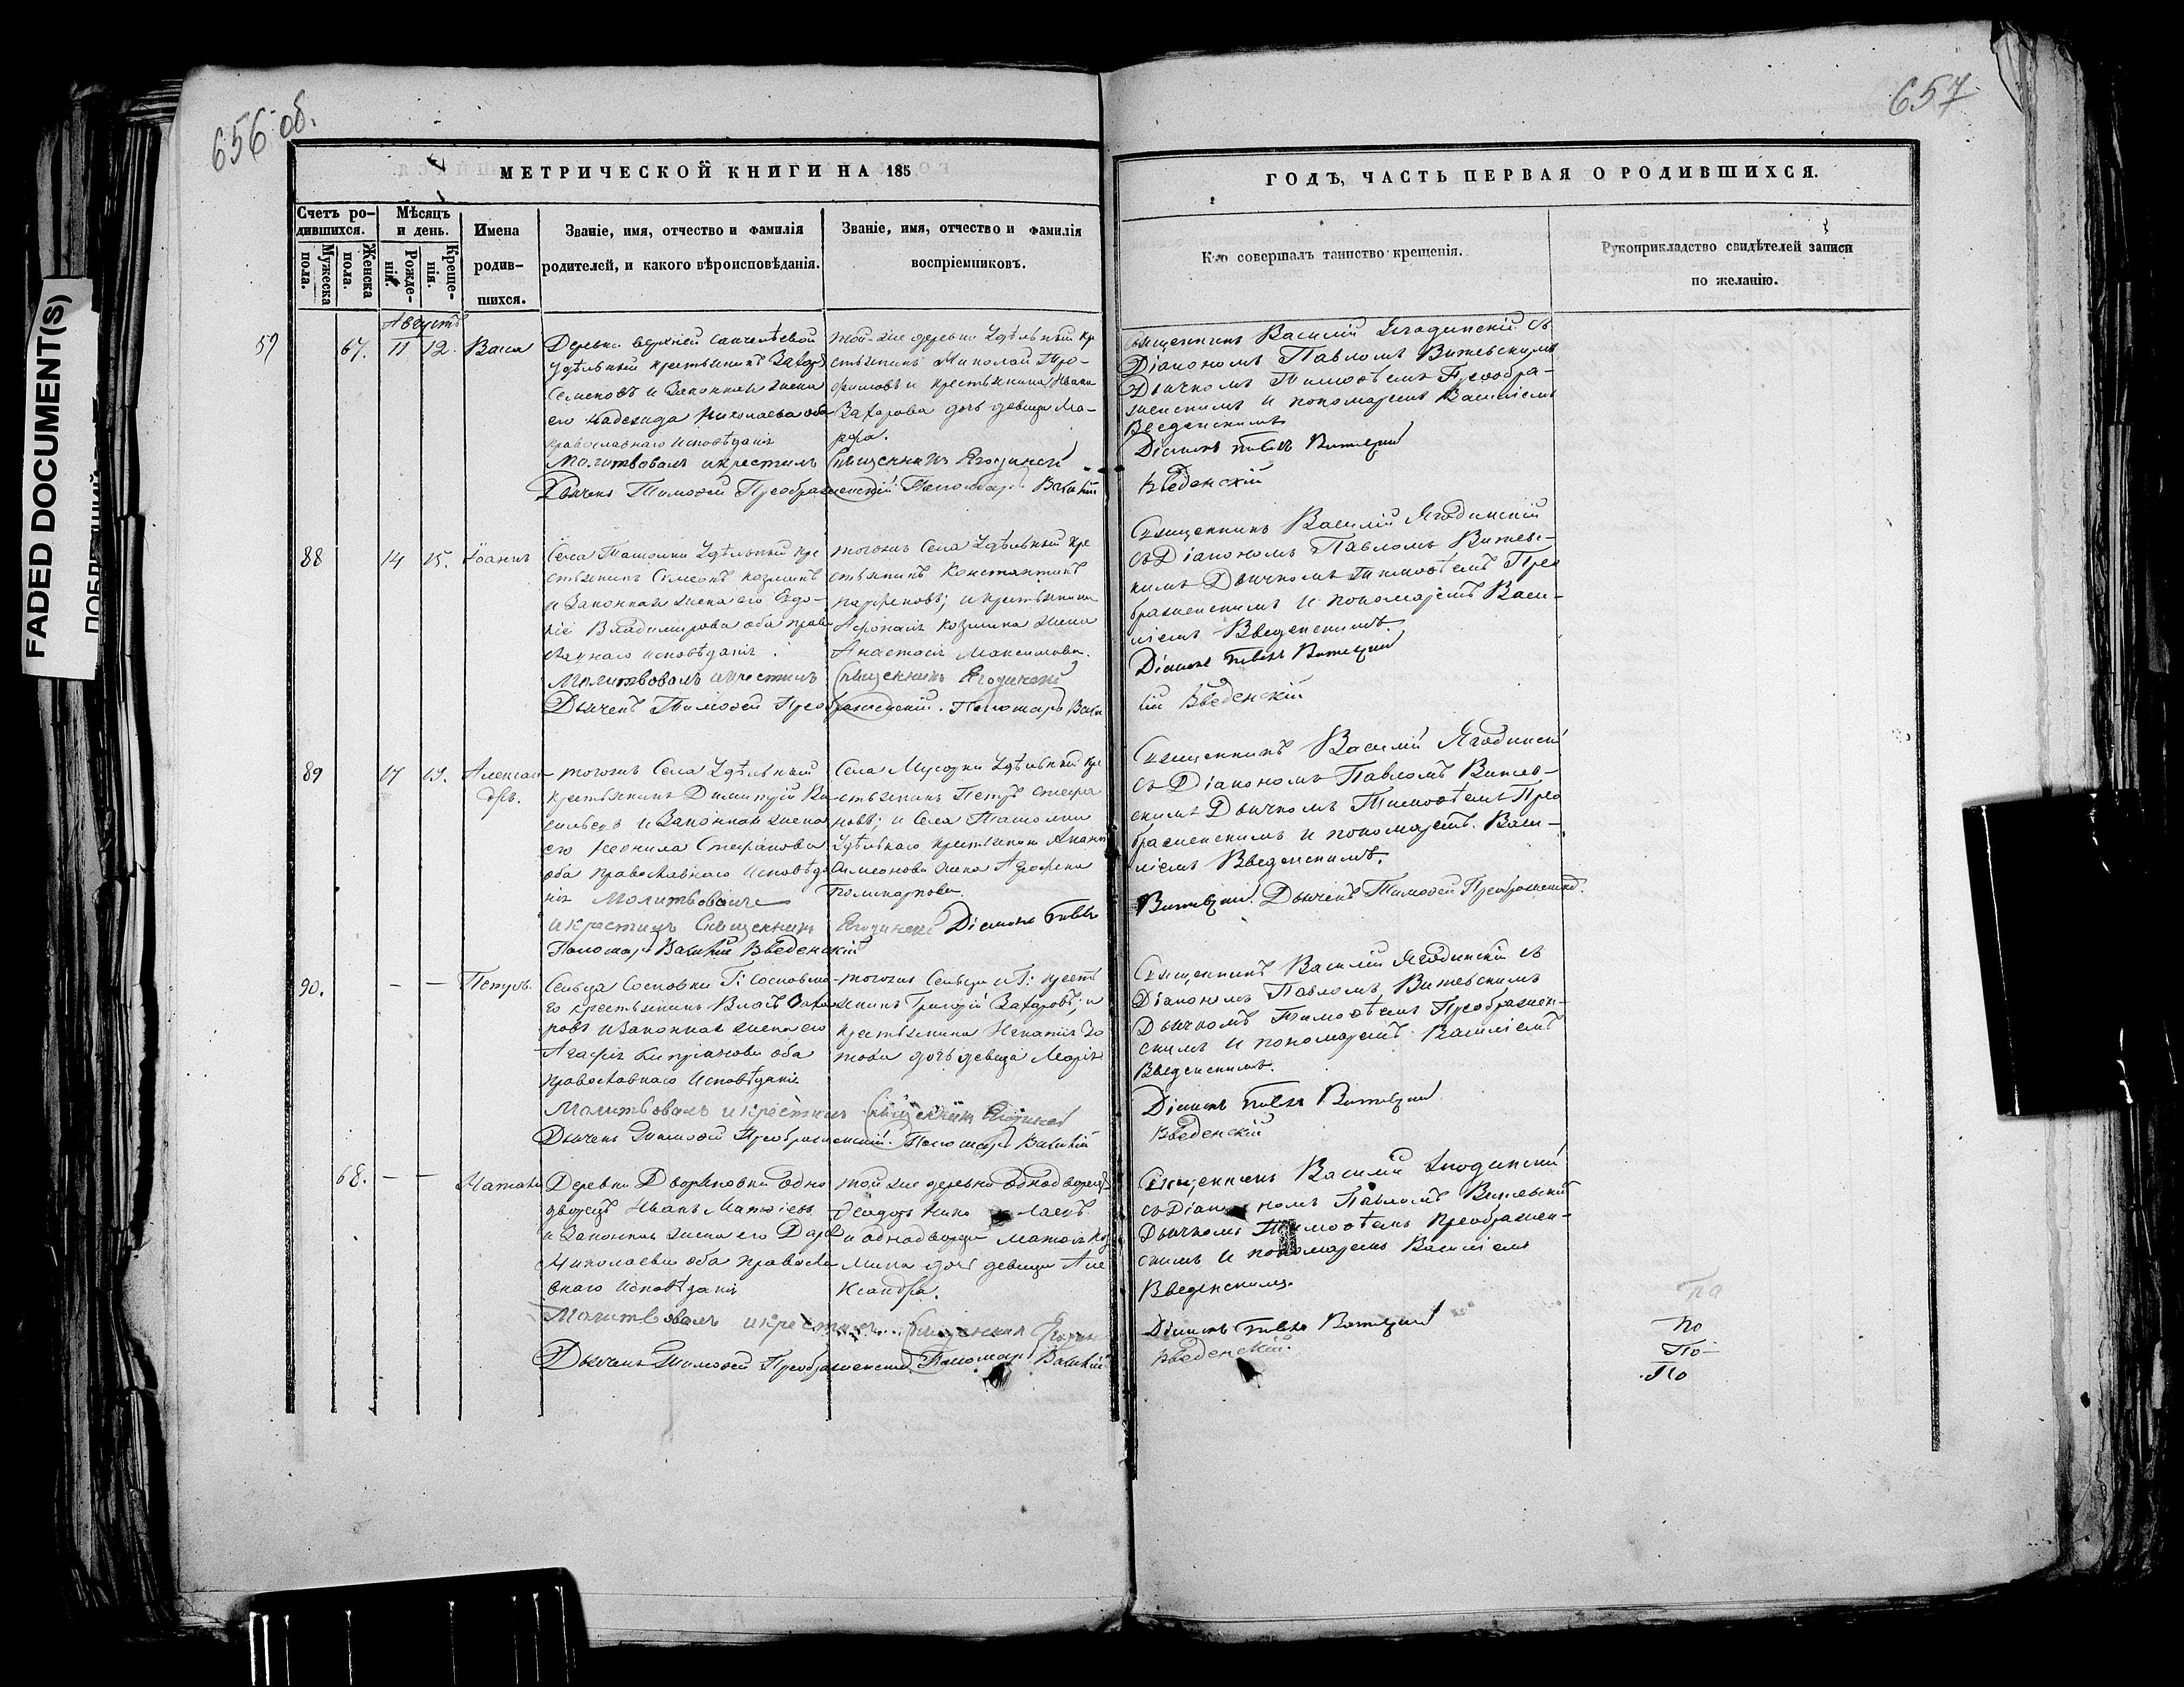 656 об.
657
FADED DOCUMENT(S)
МЕТРИЧЕСКОЙ КНИГИ НА 185
ГОДЪ, ЧАСТЬ ПЕРВАЯ О РОДИВШИХСЯ.
Счетъ ро-
дившихся.
Мужеска
пола.
Женска
пола.
Мѣсяцъ
и день.
Рожде-
нія.
Креще-
нія.
Имена
родив-
шихся.
Званіе, имя, отчество и фамилія
родителей, и какого вѣроисповѣданія.
Званіе, имя, отчество и фамилія
воспріемниковъ.
Кто совершалъ таинство крещенія.
Рукоприкладство свидѣтелей записи
по желанію.
Августъ
59
67. 11 12. Васса
Деревни верхней
Удѣльный крестьянинъ Захаръ
Семеновъ и Законная жена
его Надежда Николаева оба
православнаго Исповѣданія
Молитвовалъ и крестилъ Священникъ Ягодинскій
Дьячекъ Тимофей Преображенскій Пономарь Василій
той-же деревни Удѣльный кр
естьянинъ Николай Тро-
фимовъ и крестьянина Ивана
Захарова дочь девица Ма-
рфа.
Священникъ Василій Ягодинскій съ
Діакономъ Павломъ Витевскимъ
Дьячкомъ Тимоѳѣемъ Преобра-
женскимъ и пономаремъ Василіемъ
Введенскимъ
Діаконъ Павелъ Витевскій
Введенскій
88 14 15. Іоаннъ
Села Ташолки Удѣльный кре
стьянинъ Симеонъ Козминъ
и Законная жена его Евдо-
кія Владимирова оба право
славнаго исповѣданія.
Молитвовалъ и крестилъ Священникъ Ягодинскій
Дьячекъ Тимофей Преображенскій. Пономарь Васи
тогожъ Села Удѣльный кре
стьянинъ Константинъ
Парфеновъ; и крестьянина
Афонасія Козмина жена
Анастасія Максимова.
Священникъ Василій Ягодинскій
съ Діакономъ Павломъ Витевс-
кимъ Дьячкомъ Тимоѳѣемъ Прео
браженскимъ и пономаремъ Васи-
ліемъ Введенскимъ
Діаконъ Павелъ Витевскій
лій Введенскій
89 17 19. Алексан-
дръ.
тогожъ Села Удѣльный
крестьянинъ Димитрій Ва-
сильевъ и Законная жена
его Неонила Стефанова
оба православнаго исповѣда
нія Молитвовалъ
и крестилъ Священникъ Ягодинскій Діаконъ Павелъ
Пономарь Василій Введенскій
Села Мусорки Удѣльный кре
стьянинъ Петръ Стефа
новъ; и Села Ташолки
Удѣльнаго крестьянина
Симеонова жена Агрофена
Поликарпова.
Священникъ Василій Ягодинскій
съ Діакономъ Павломъ Витев-
скимъ Дьячкомъ Тимоѳѣемъ Прео
браженскимъ и пономаремъ Васи-
ліемъ Введенскимъ.
Витевскій. Дьячекъ Тимофей Преображенскій.
90. - - Петръ.
Сельца Сосновки Г:
го крестьянинъ Власъ Захо
ровъ и Законная жена его
Агафія Кипріанова оба
православнаго Исповѣданія
Молитвовалъ и крестилъ Священникъ Ягодинскій
Дьячекъ Тимофей Преображенскій. Пономарь Василій
тогожъ Сельца и Г: крест
янинъ Григорій Захаровъ; и
крестьянина Игнатія
дочь девица Марія
Священникъ Василій Ягодинскій съ
Діакономъ Павломъ Витевскимъ
Дьячкомъ Тимоѳѣемъ Преображен-
скимъ и пономаремъ Василіемъ
Введенскимъ.
Діаконъ Павелъ Витевскій
Введенскій
68. - - Наталія
Деревни Дворяновки Одно
дворецъ Иванъ Матвіевъ
и Законная жена его Дарья
Николаева оба правосла
внаго Исповѣданія
Молитвовалъ и крестилъ Священникъ
Дьячекъ Тимофей Преображенскій Пономарь Василій
той же деревни Однодворецъ
Ѳеодоръ Нико лаевъ
и однодворца Матвія Коз
мина дочь девица Але
ксандра.
Священникъ Василій Ягодинскій
съ Діакономъ Павломъ Витевскимъ
Дьячкомъ Тимоѳѣемъ Преображен-
скимъ и пономаремъ Василіемъ
Введенскимъ.
Діаконъ Павелъ Витевскій
Введенскій.
По
По
По